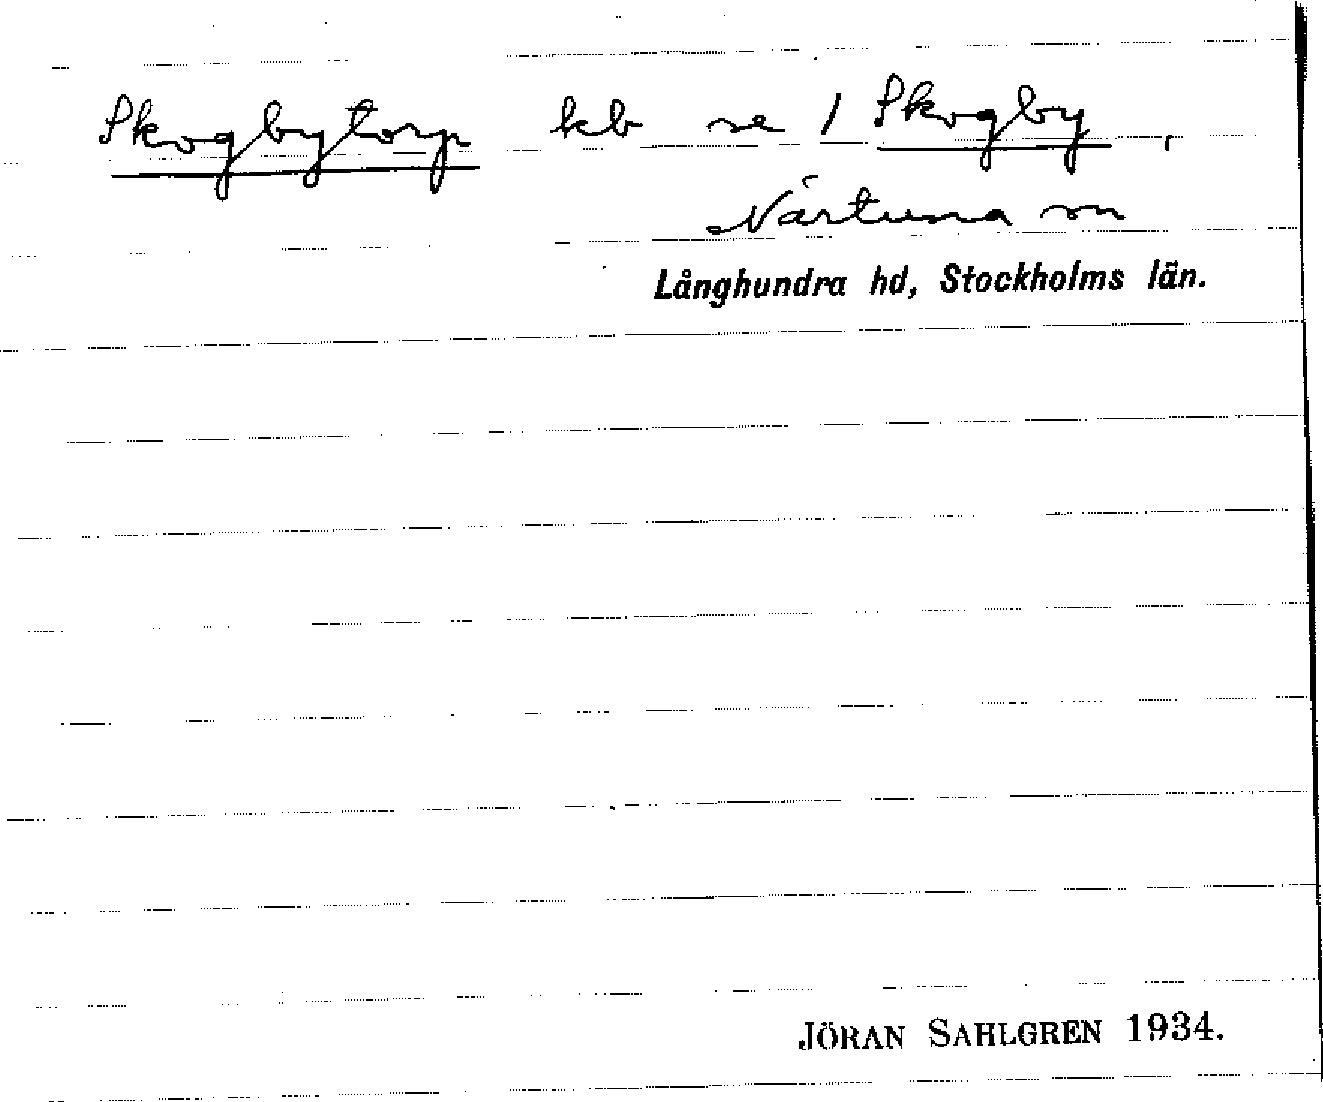 Skogbytorp kb se 1 Skogby,
Närtuna sn
Långhundra hd, Stockholms län.
JÖRAN SAHLGREN 1934.